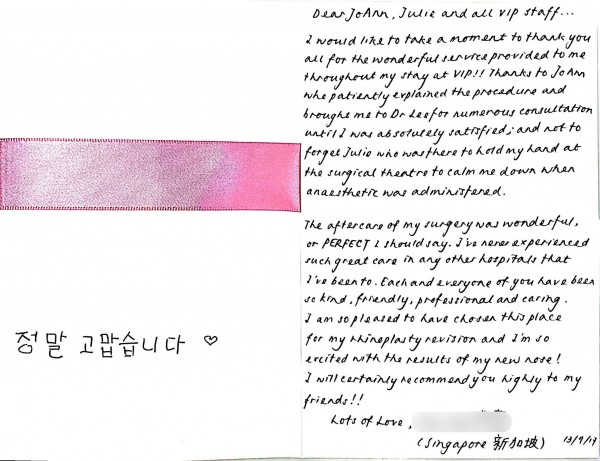 정말 고맙습니다 ♡
Dear JoAnn, Julie and all VIP staff...
I would like to take a moment to thank you
all for the wonderful service provided to me
throughout my stay at VIP!! Thanks to JoAnn
who patiently explained the procedure and
brought me to Dr Lee for numerous consultation
until I was absolutely satisfied; and not to
forget Julie who was there to hold my hand at
the surgical theatre to calm me down when
anaesthetic was administered.
The aftercare of my surgery was wonderful,
or PERFECT I should say. I've never experienced
such great care in any other hospitals that
I've been to. Each and everyone of you have been
so kind, friendly, professional and caring.
I am so pleased to have chosen this place
for my rhinoplasty revision and I'm so
excited with the results of my new nose!
I will certainly recommend you highly to my
friends!!
Lots of Love,
(Singapore 新加坡) 13/9/17